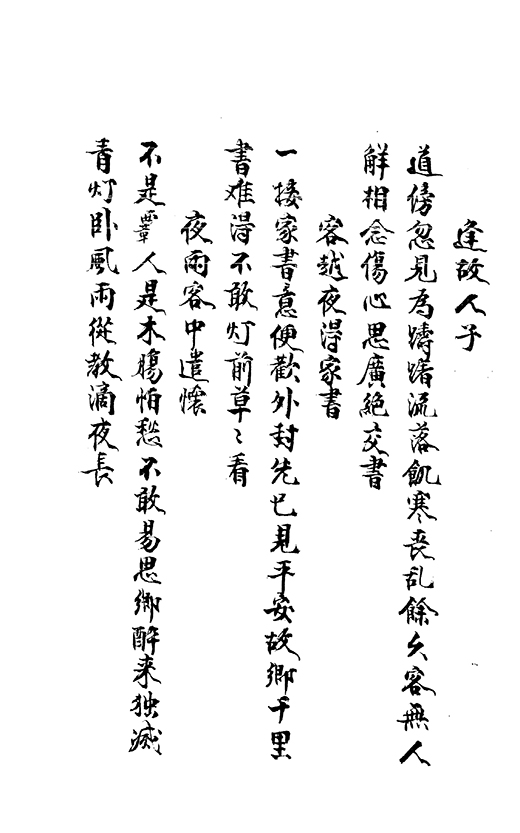 逢故人子
道傍忽見為躊躇流落飢寒喪乱餘久客無人
解相念傷心思廣絶交書
客越夜淂家書
一接家書意便歡外封先已見平安故鄉千里
書难淂不敢灯前草〻看
夜雨客中遣懷
不是覊人是木腸怕愁不敢易思鄉醉来独滅
青灯卧風雨從教滴夜長